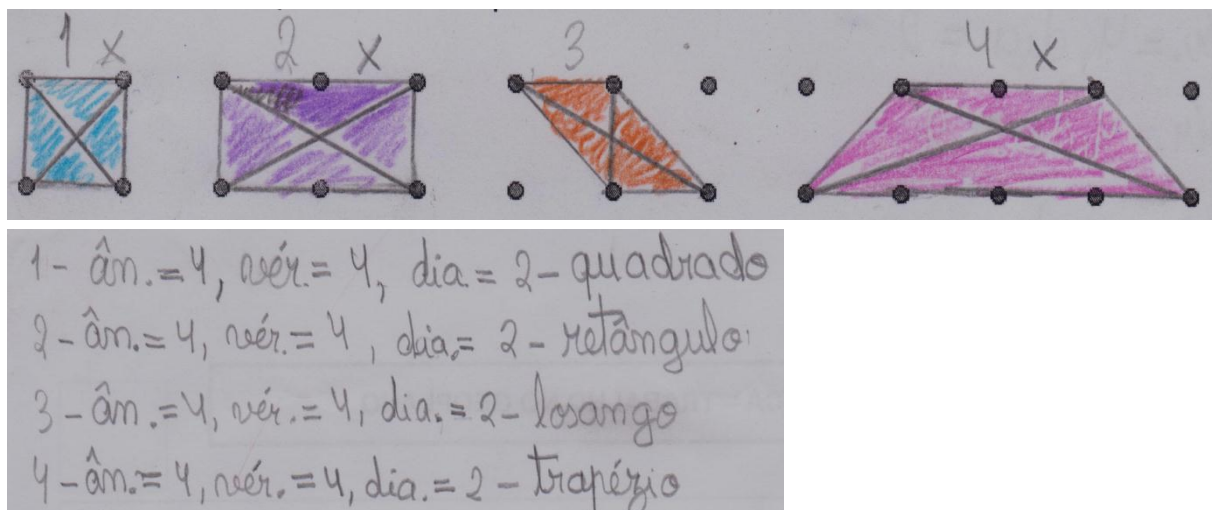 1 x 2 x 3 4 x
1- ân.=4, vér.=4, dia.=2-quadrado
2-ân.=4, vér.=4, dia.=2-retângulo
3-ân.=4, vér.=4, dia.=2-losango
4-ân.=4, vér.=4, dia.=2-trapézio